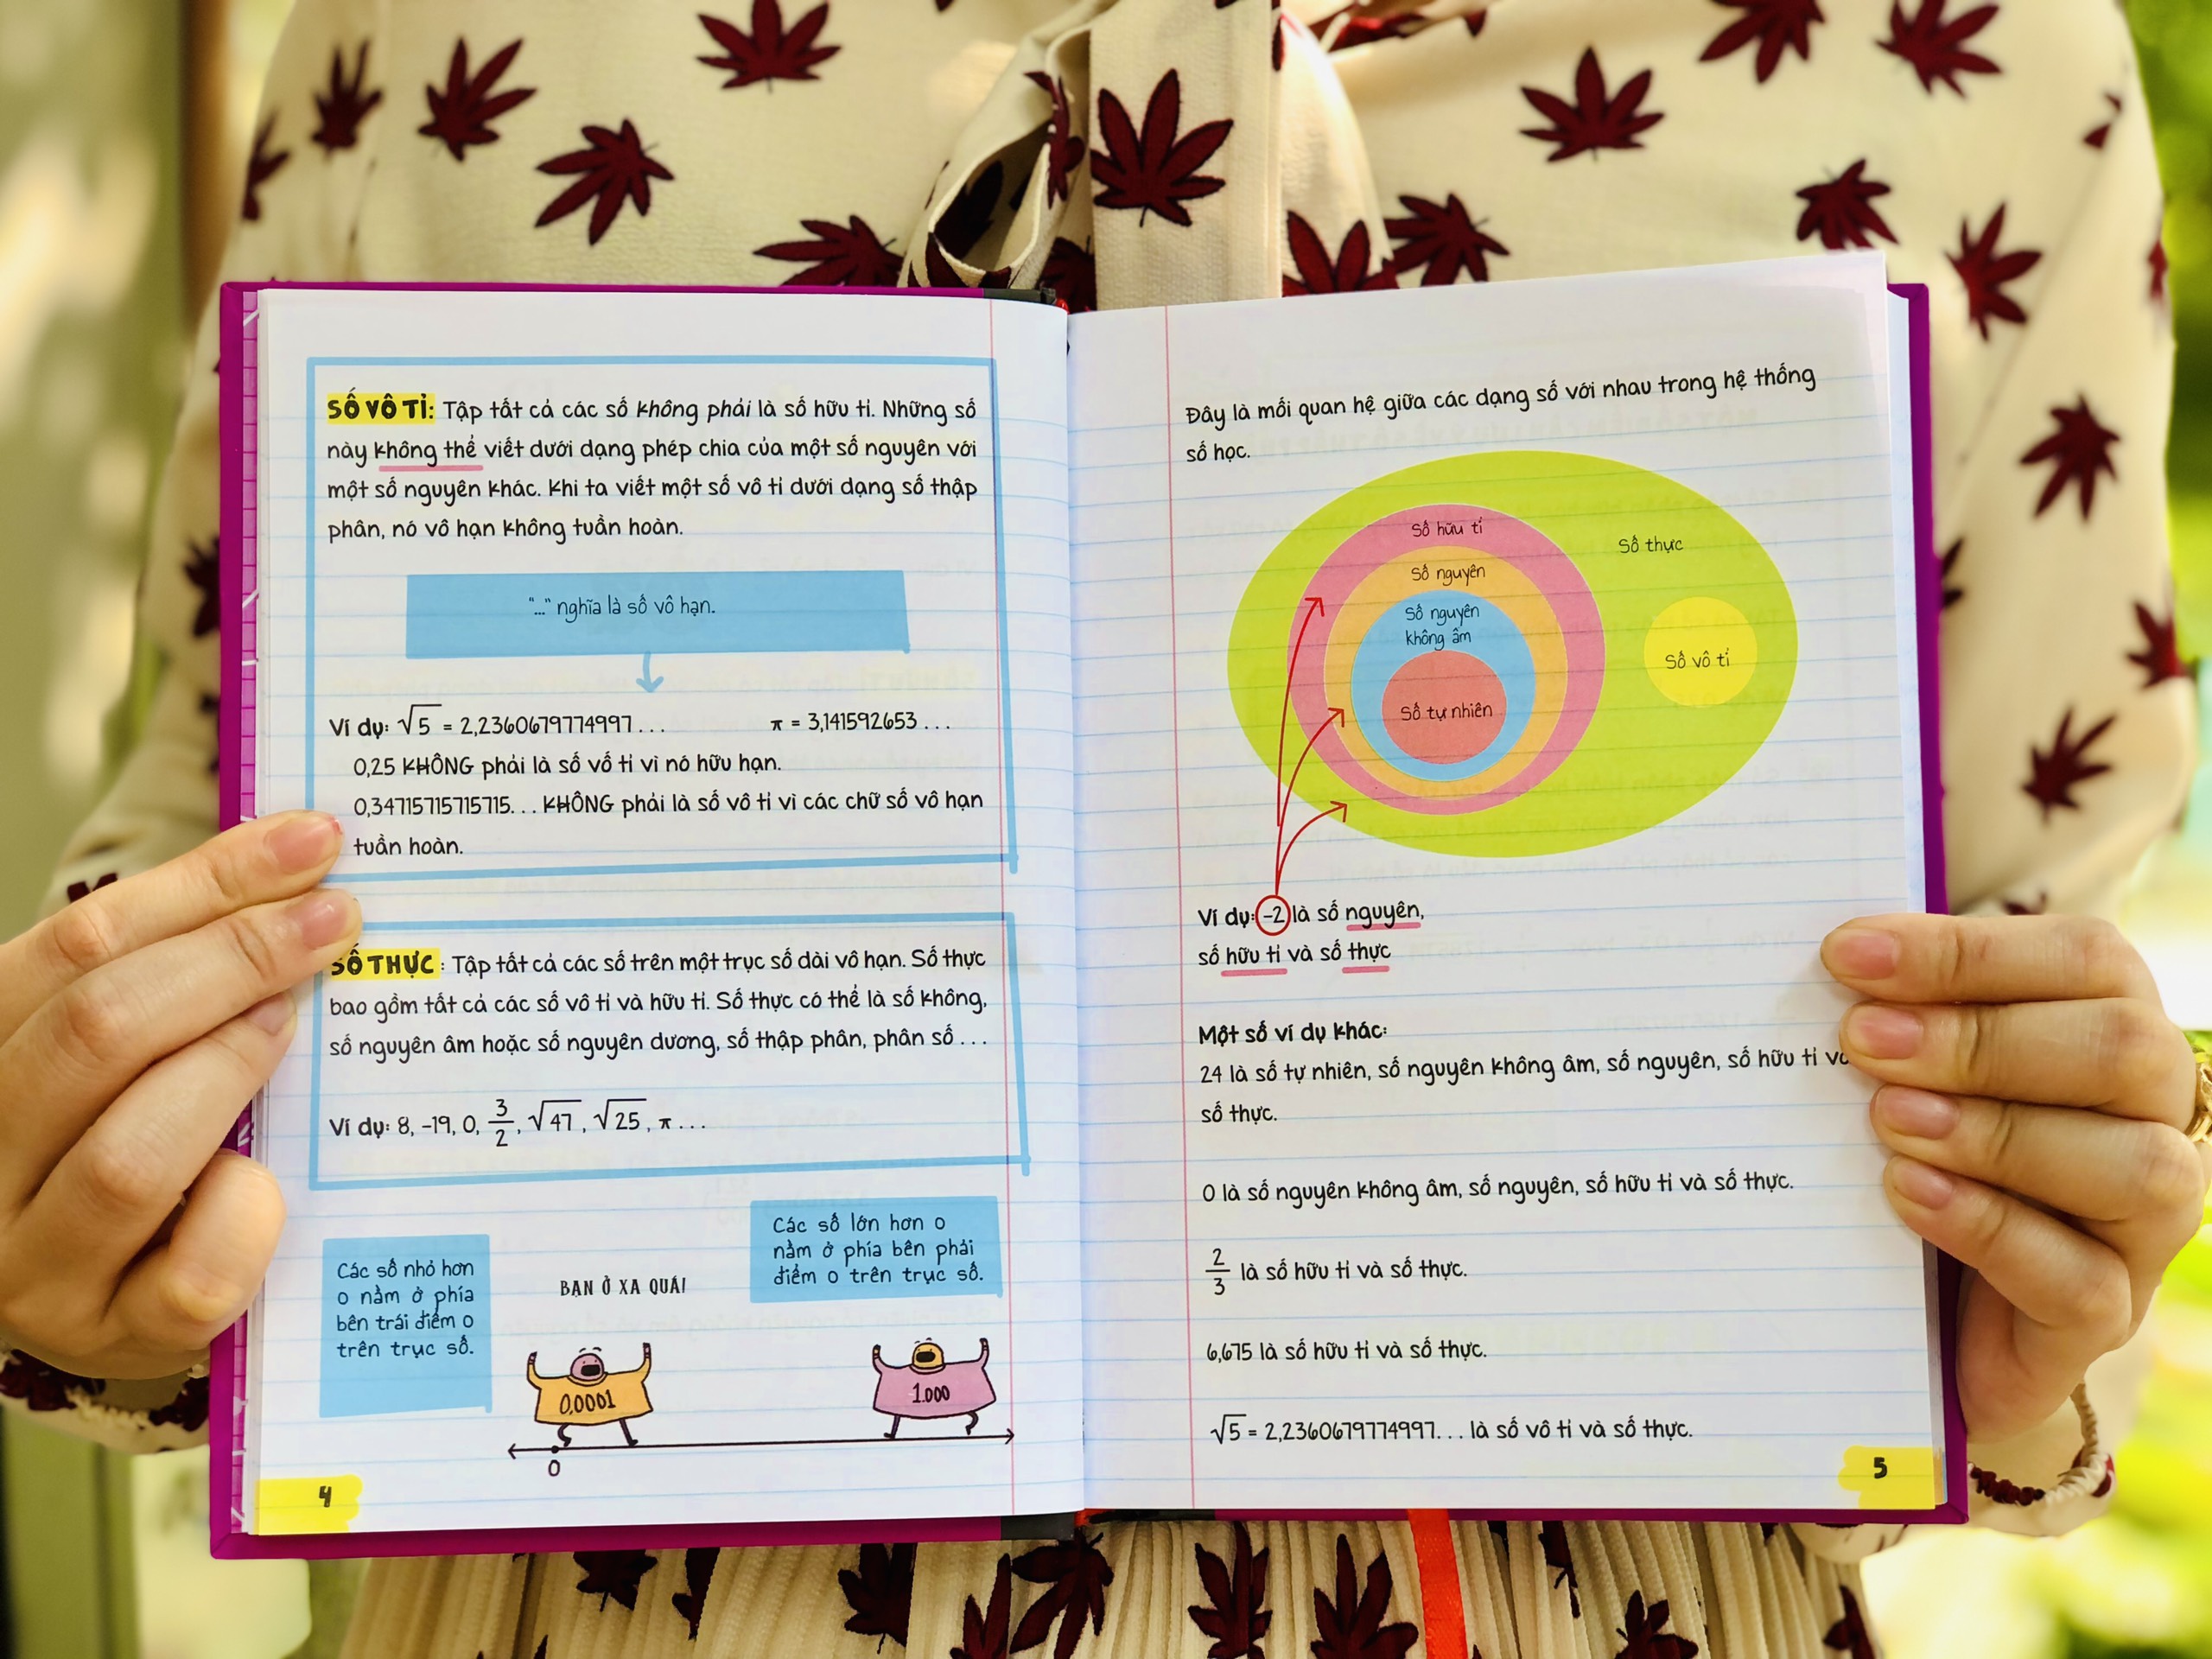 SỐ VÔ TỈ: Tập tất cả các số không phải là số hữu tỉ. Những số
này không thể viết dưới dạng phép chia của một số nguyên với
một số nguyên khác. Khi ta viết một số vô tỉ dưới dạng số thập
phân, nó vô hạn không tuần hoàn.
"..." nghĩa là số vô hạn.
Ví dụ: √5 = 2,2360679774997... π = 3,141592653...
0,25 KHÔNG phải là số vô tỉ vì nó hữu hạn.
0,34715715715715... KHÔNG phải là số vô tỉ vì các chữ số vô hạn
tuần hoàn.
SỐ THỰC: Tập tất cả các số trên một trục số dài vô hạn. Số thực
bao gồm tất cả các số vô tỉ và hữu tỉ. Số thực có thể là số không,
số nguyên âm hoặc số nguyên dương, số thập phân, phân số...
Ví dụ: 8, -19, 0, 3/2, √47, √25, π...
Các số nhỏ hơn
0 nằm ở phía
bên trái điểm 0
trên trục số.
BẠN Ở XA QUÁ!
Các số lớn hơn 0
nằm ở phía bên phải
điểm 0 trên trục số.
0,0001
1.000
0
4
Đây là mối quan hệ giữa các dạng số với nhau trong hệ thống
số học.
Số hữu tỉ
Số nguyên
Số nguyên
không âm
Số tự nhiên
Số thực
Số vô tỉ
Ví dụ: -2 là số nguyên,
số hữu tỉ và số thực
Một số ví dụ khác:
24 là số tự nhiên, số nguyên không âm, số nguyên, số hữu tỉ
số thực.
0 là số nguyên không âm, số nguyên, số hữu tỉ và số thực.
2/3 là số hữu tỉ và số thực.
6,675 là số hữu tỉ và số thực.
√5 = 2,2360679774997... là số vô tỉ và số thực.
5